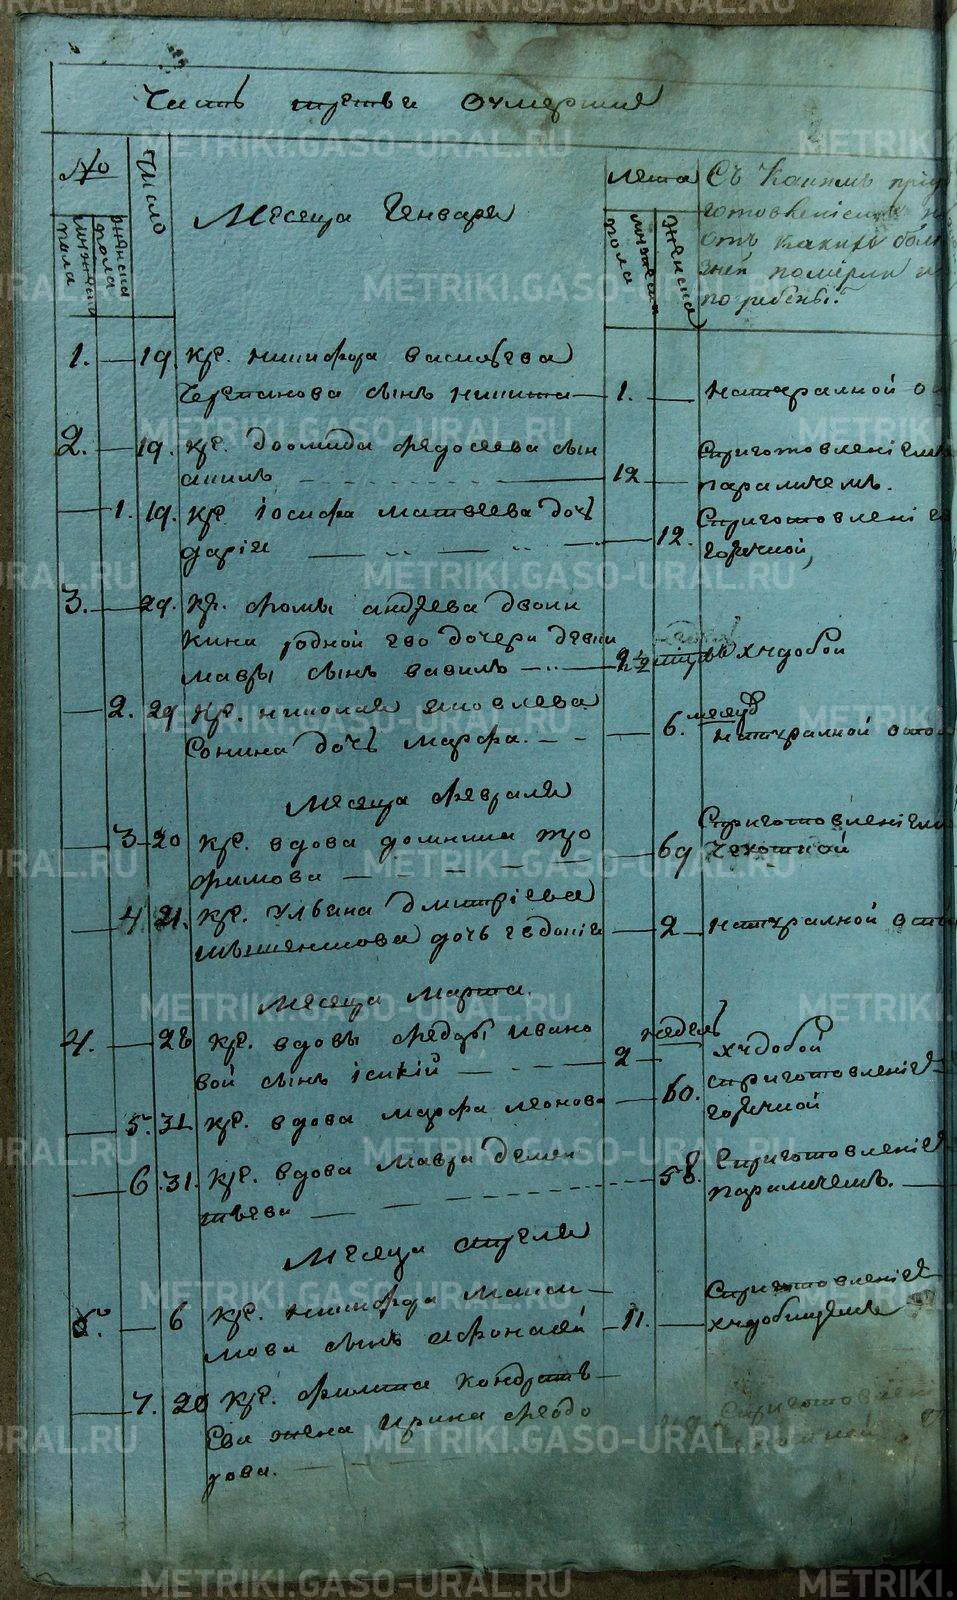 Часть третья о умершихъ
№
Число
мужеска пола
женска пола
Месяца Генваря
Лета
мужеска пола
женска
Съ Какимъ приу
готовленiемъ и
отъ какихъ боле
зней померли и
погребены.
1. 19. Кр. никифора васильева
Черепанова сынъ никита 1. натуралной о
2. 19. Кр. Доомида федосеева сын
12 Сприготовленiемъ
параличемъ.
1. 19. Кр. iосифа матвеева дочь
дарiя 12. Сприготовленi
горячкой,
3. 29. Кр. фомы андреева двоин
кина родной ево дочери девки
мавры сынъ вавилъ 2 1/2 худобой
2. 29 Кр. николая яковлева
Сонина дочь марфа. 6. месяц натуралной
Месяца февраля
3 20 Кр. вдова домника тро
фимова 69 Сприготовленiем
чехоткой
4 21. Кр. Ульяна дмитрiева
дочь евдокiя 2 натуралной
Месяца марта.
4. 28 Кр. вдовы федоры ивано
вой сынъ 2 недель худобой
5. 31 Кр. вдова марфа леонова 60. Сприготовленiе
горячкой
6. 31. Кр. вдова мавра демен
тьева 58. Сприготовленiе
параличемъ.
Месяца апреля
5. 6 Кр. никифора макси
мова сынъ афонасей 11. Сприготовленiе
7. 20 Кр. филипа кондрать
Ева жена ирина федо
рова. Сприготовленi
METRIKI.GASO-URAL.RU